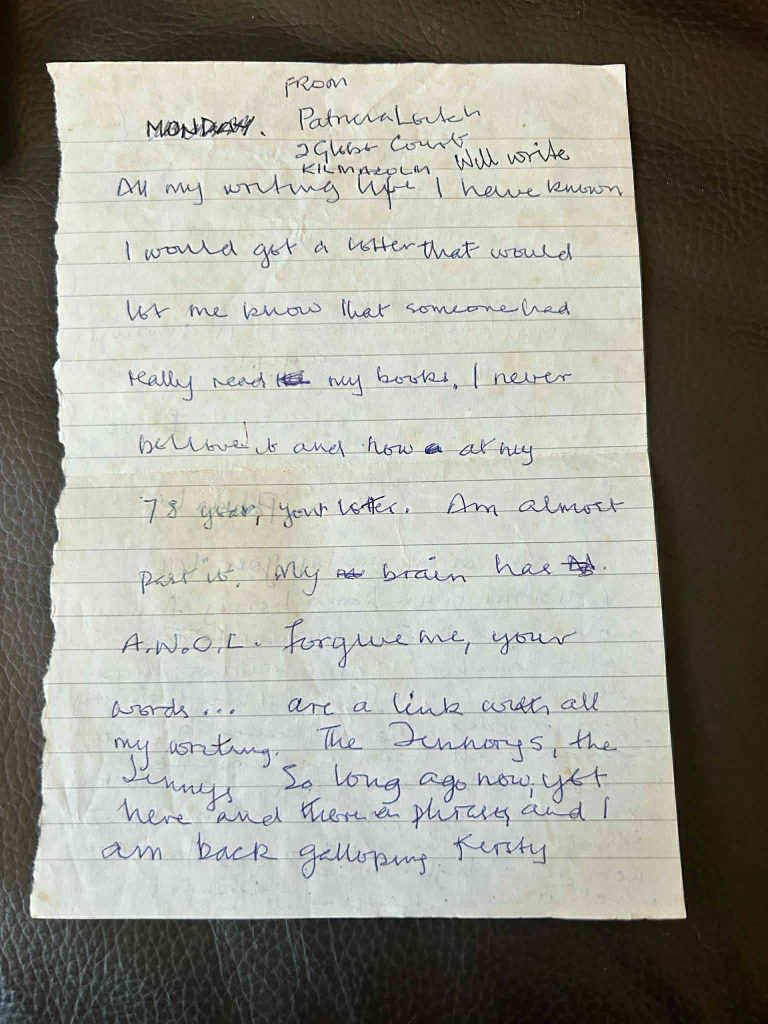 FROM
MONDAY. Patricia Leitch
2 Glebe Court
KILMACOLM Will write
All my writing life I have known
I would get a letter that would
let me know that someone had
really read my books. I never
believed it and now at my
78 year, your letter. Am almost
past it. My brain has
A.W.O.L. Forgive me, your
words... are a link with all
my writing. The Jennorys, the
Jennys, So long ago now, yet
here and there a phrase, and I
am back galloping Kersty